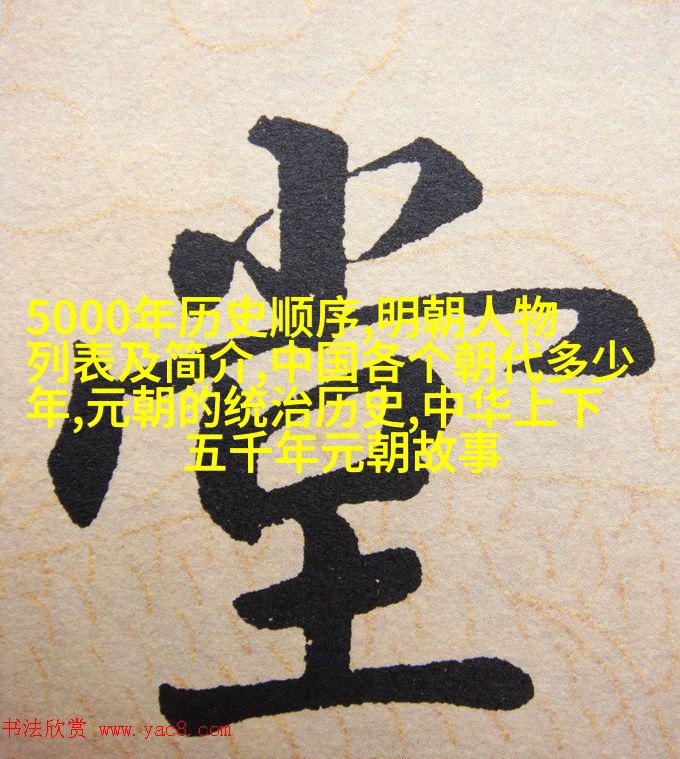 堂
5000年历史顺序,明朝人物
列表及简介,中国各个朝代多少
年,元朝的统治历史,中华上下
五千年元朝故事
书法欣赏 www.yac8.com